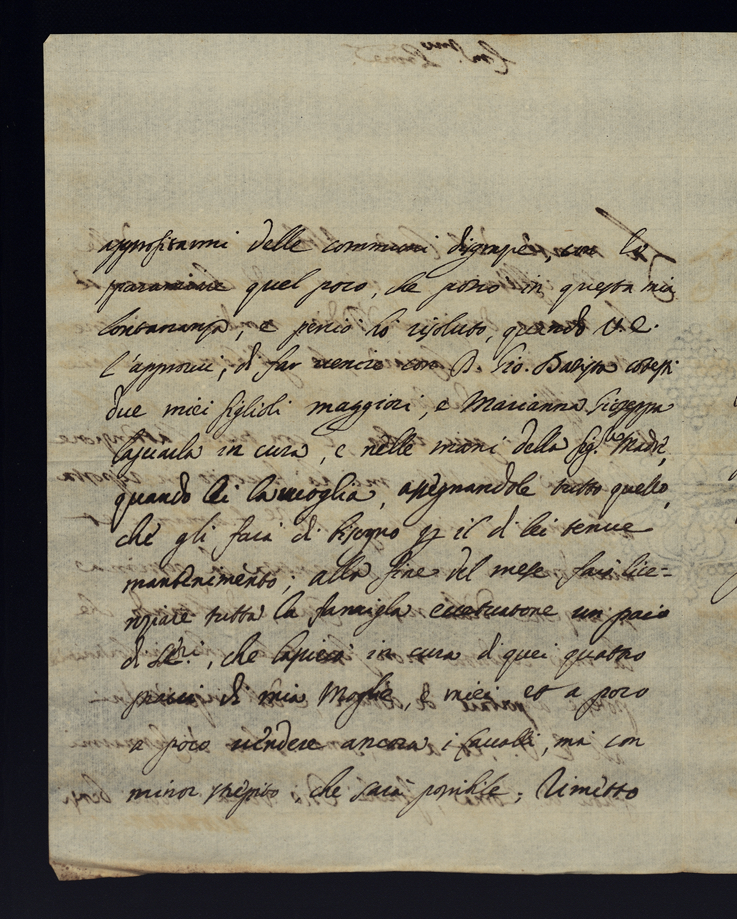 approfitarmi delle communi disgrazie, con la
quel poco, che posso in questa mia
lontananza, e perciò ho risoluto, quando V. E.
l'approvi, di far venire con D. Gio. Batista cotesti
due miei figlioli maggiori, e Marianna Giuseppa
lasciarla in cura, e nelle mani della Sig.ra Madre,
quando lei la voglia, assegnandole tutto quello,
che gli farà di bisogno p il di lei tenue
mantenimento; alla fine del mese farò lice=
nziare tutta la famiglia eccettuatone un paio
di, che lascierà in cura di quei quattro
stracci di mia Moglie, e miei et a poco
a poco vendere ancora i cavalli, ma con
minor strepito che sarà possibile; Rimetto